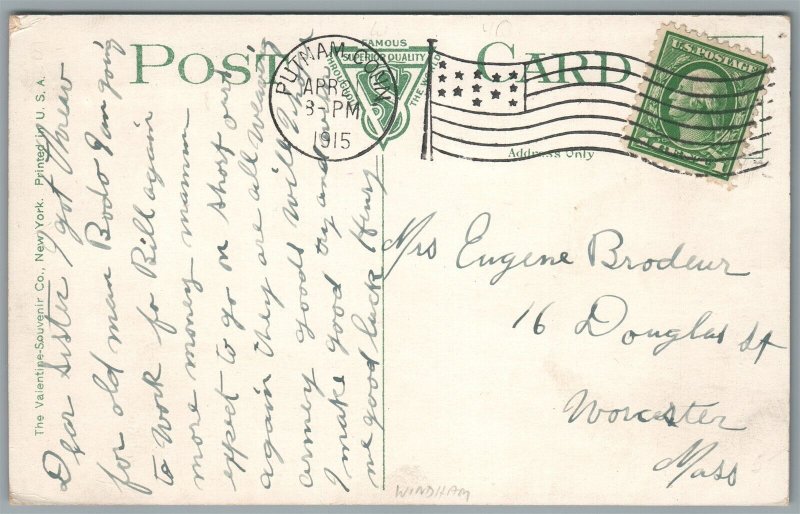 POST CARD
FAMOUS
SUPERIOR QUALITY
THROUGHOUT THE WORLD
PUTNAM, CONN.
APR
3-PM
1915
U.S. POSTAGE
1 CENT 1
Address Only
The Valentine-Souvenir Co., New York. Printed in U. S. A.
Dear sister I got threw
for old man Bodo I am going
to work fo Bill again
more money mamm
expect to go on short
again they are all wearing
armey goods will
I make good try and
me good luck Henry
Mrs Eugene Brodeur
16 Douglas St
Worcester
Mass
WINDHAM